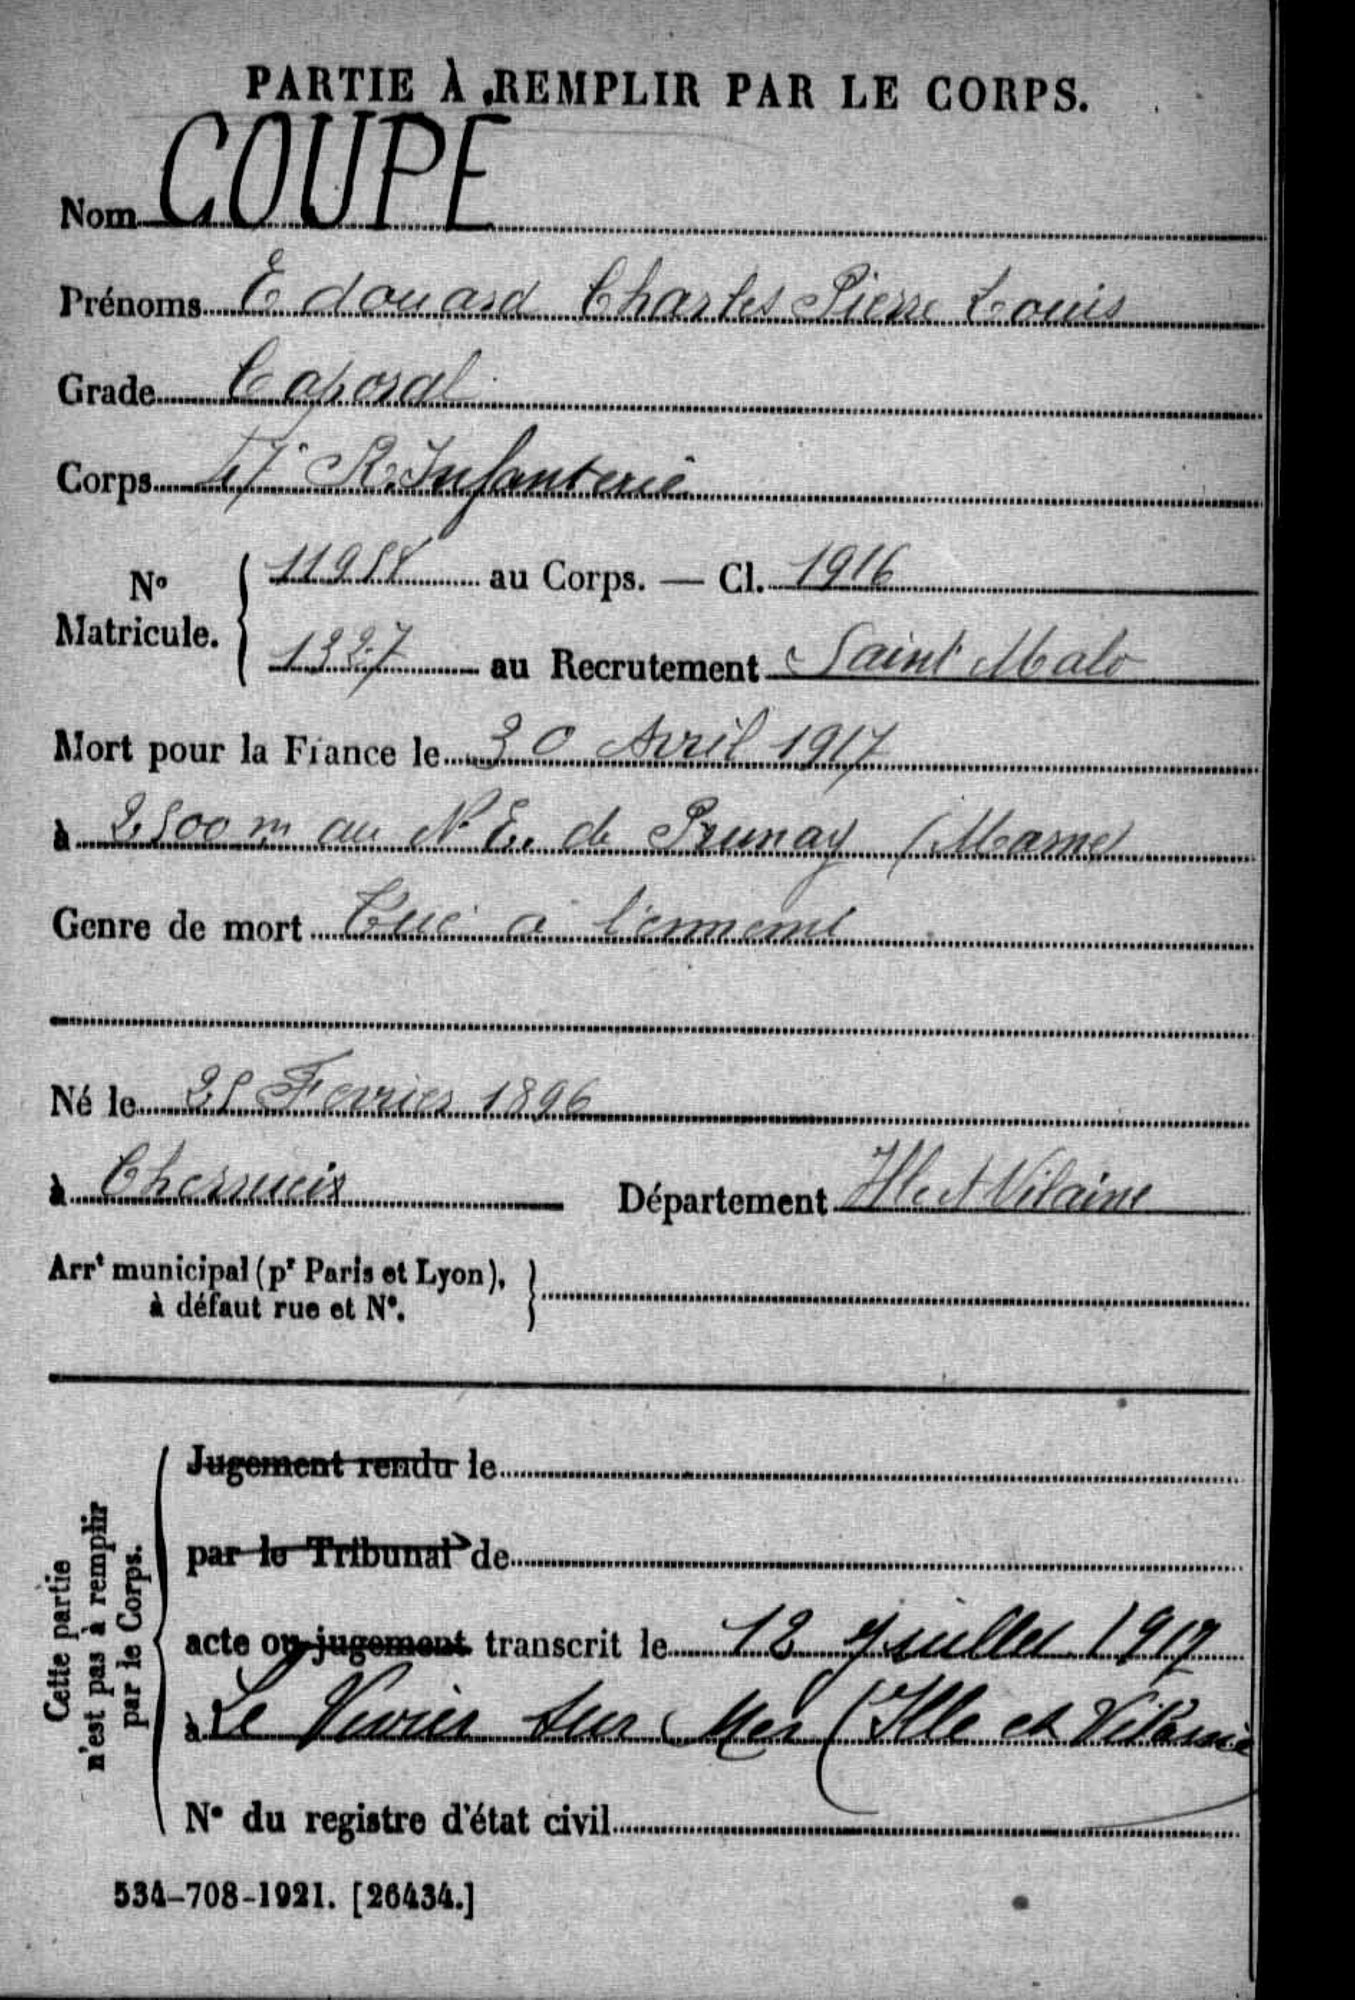 PARTIE À REMPLIR PAR LE CORPS.
Nom COUPE
Prénoms Edouard Charles Pierre Louis
Grade Caporal
Corps 47e R. Infanterie
No Matricule. 11958 au Corps. — Cl. 1916
1327 au Recrutement Saint Malo
Mort pour la France le 30 Avril 1917
à 2.500 m au N. E. de Prunay (Marne)
Genre de mort Tué à l'ennemi
Né le 25 Fevrier 1896
à Cherrueix Département Ille et Vilaine
Arrt municipal (pr Paris et Lyon),
à défaut rue et No.
Cette partie
n'est pas à remplir
par le Corps.
Jugement rendu le
par le Tribunal de
acte ou jugement transcrit le 12 Juillet 1917
à Le Vivier sur Mer (Ille et Vilaine
No du registre d'état civil
534-708-1921. [26434.]